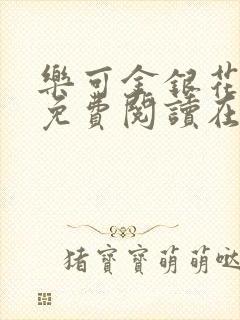 樂可金銀花
免費閱讀在
猪寶寶萌萌噠